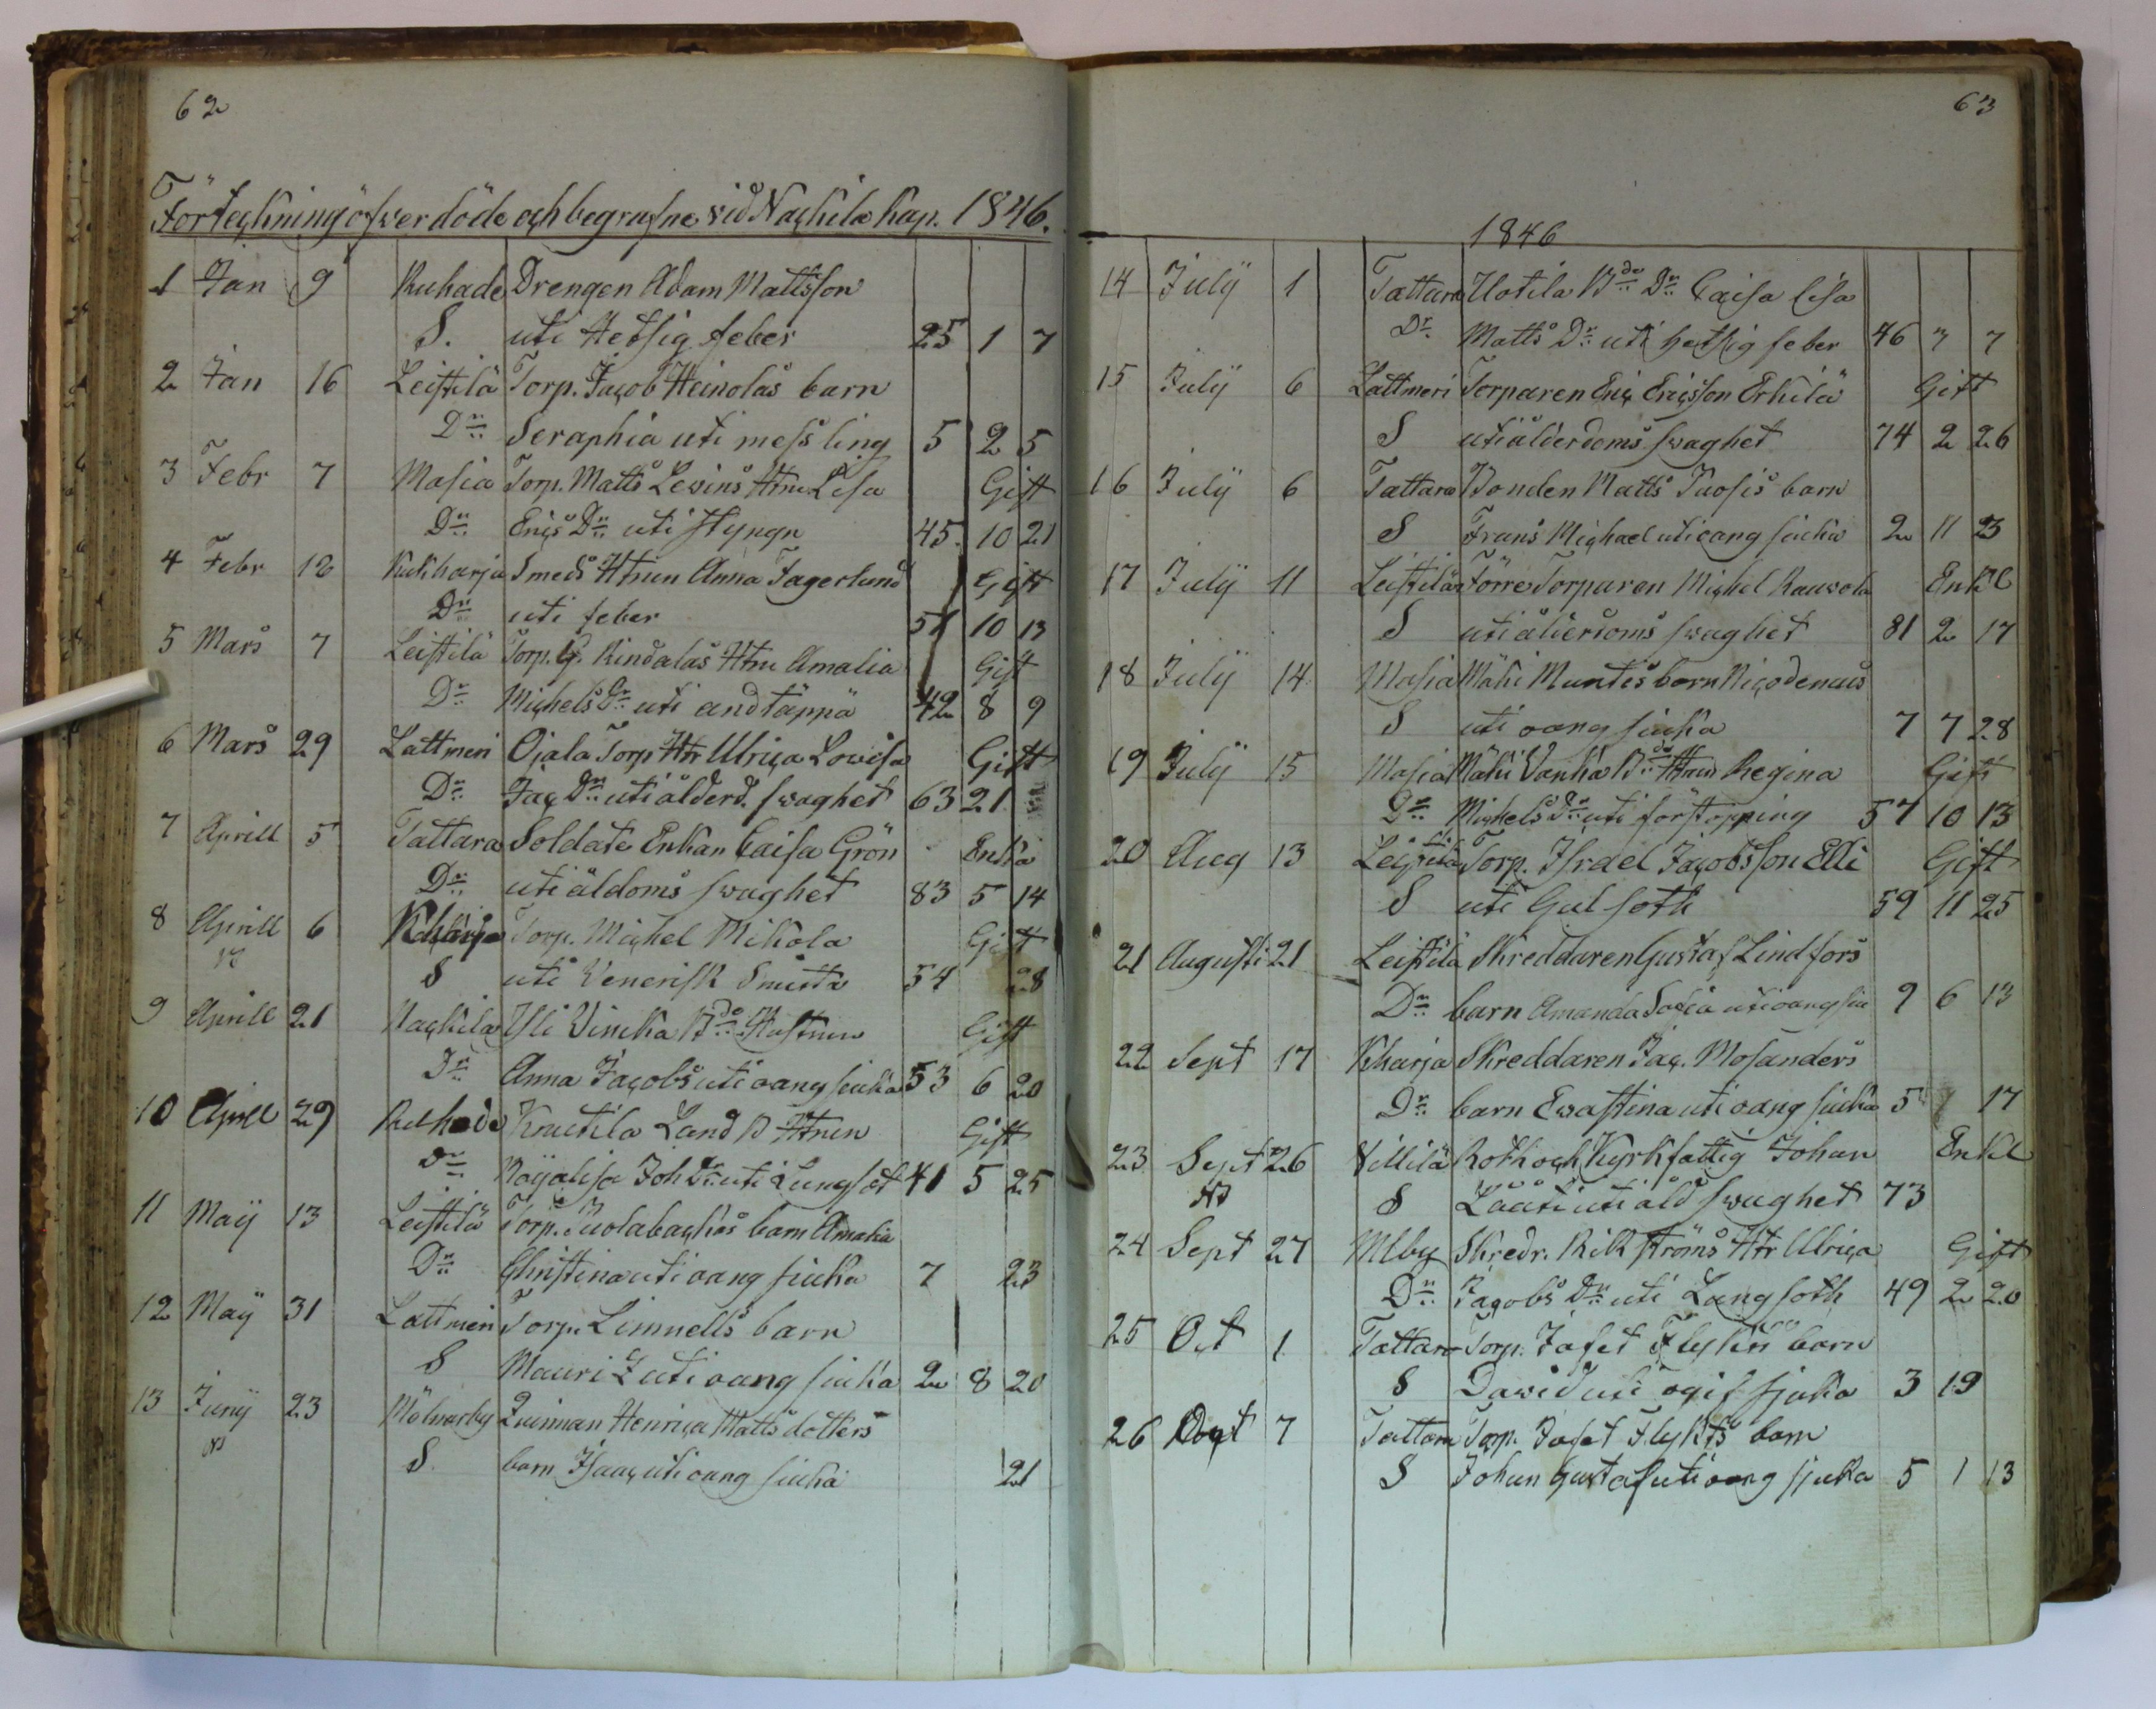 62
Förteckning öfwer döde och begrafne vid Nackila Kap. 1846.
1 Jan 9 Ruhade Drengen Adam Mattsson
S. uti Hetsig feber 25 1 7
2 Jan 16 Leistilä Torp. Jacob Heinolas barn
Dr Seraphia uti messling 5 2 5
3 Febr 7 Masia Torp. Matts Lewins Htru Lisa Gift
Dr Erics Dr uti styngn 45 10 21
4 Febr 12 Kukharja Smeds Htrun Anna Fagerlund Gift
Dr uti feber 51 10 13
5 Mars 7 Leistilä Torp. G. Rindalas Htru Amalia Gift
Dr Michels Dr uti andtäppa 42 8 9
6 Mars 29 Lattmeri Ojala Torp Htr Ulrica Lowisa Gift
Dr Jac Dr uti ålderd. swaghet 63 21
7 Aprill 5 Tattara Soldats Enkan Caisa Grön Enka
Dr uti åldoms swaghet 83 5 14
8 Aprill 6 Torp. Michel Mikola Gift
S uti Venerisk Smitta 54 28
9 Aprill 21 Nackila Yli Vinika Bdo Hustrun Gift
Dr Anna Jacobs uti oang siuka 53 6 20
10 Aprill 29 Ruhade Knutila Land B Htrun Gift
Dr Maijalisa Joh Dr uti Lungsot 41 5 25
11 Maij 13 Leistilä Torp. barn Amalia
Dr Christina uti oang siuka 7 23
12 Maij 31 Lattmeri Torp. Limnells barn
S Mauri Z uti oang siuka 2 8 20
13 Junij 23 Molnarby Quinnan Henrica Matts dotters
S barn Isaac uti oang siuka 21
63
1846
14 Julij 1 Tattara Uotila Bdo Dr Caisa Lisa
Dr Matts Dr uti hetsig feber 46 " 7
15 Julij 6 Lattmeri Torparen Eric Ericsson Erkilä Gift
S uti ålderdoms swaghet 74 2 26
16 Julij 6 Tattara Bonden Matts Juosis barn
S Frans Michael uti oang siuka 2 11 23
17 Julij 11 Leistilä Förre Torparen Michel Rauvola Enkl
S uti ålderdoms swaghet 81 2 17
18 Julij 14 Masia Mäki Muntis barn Nicodemus
S uti oang siuka 7 7 28
19 Julij 15 Masia Mäki Vanha Bdo Htrus Regina Gift
Dr Michels Dr uti förstopping 57 10 13
20 Aug 13 Leistilä Torp. Israel Jacobsson Elli Gift
S uti Gulsoth 59 11 25
21 Augusti 21 Leistilä Skreddaren Gustaf Lindfors
Dr barn Amanda Sofia uti oang siu 9 6 13
22 Sept 17 Kharja Skreddaren Jac. Mosanders
Dr barn Ewastina uti oang siuka 5 7 17
23 Sept 26 Villilä Roth och Kyrkfattig Johan Enkl
S Lääti uti åld swaghet 73
24 Sept 27 Mlby Skredr. Rikströms Htr Ulrica Gift
Dr Jacobs Dr uti Lungsoth 49 2 20
25 Oct 1 Tattara Torp. Jafet Flykts barn
S Dawid uti ogif sjuka 3 19
26 Oct 7 Tattara Torp. Jafet Flykts barn
S Johan Gustaf uti oang sjuka 5 1 13